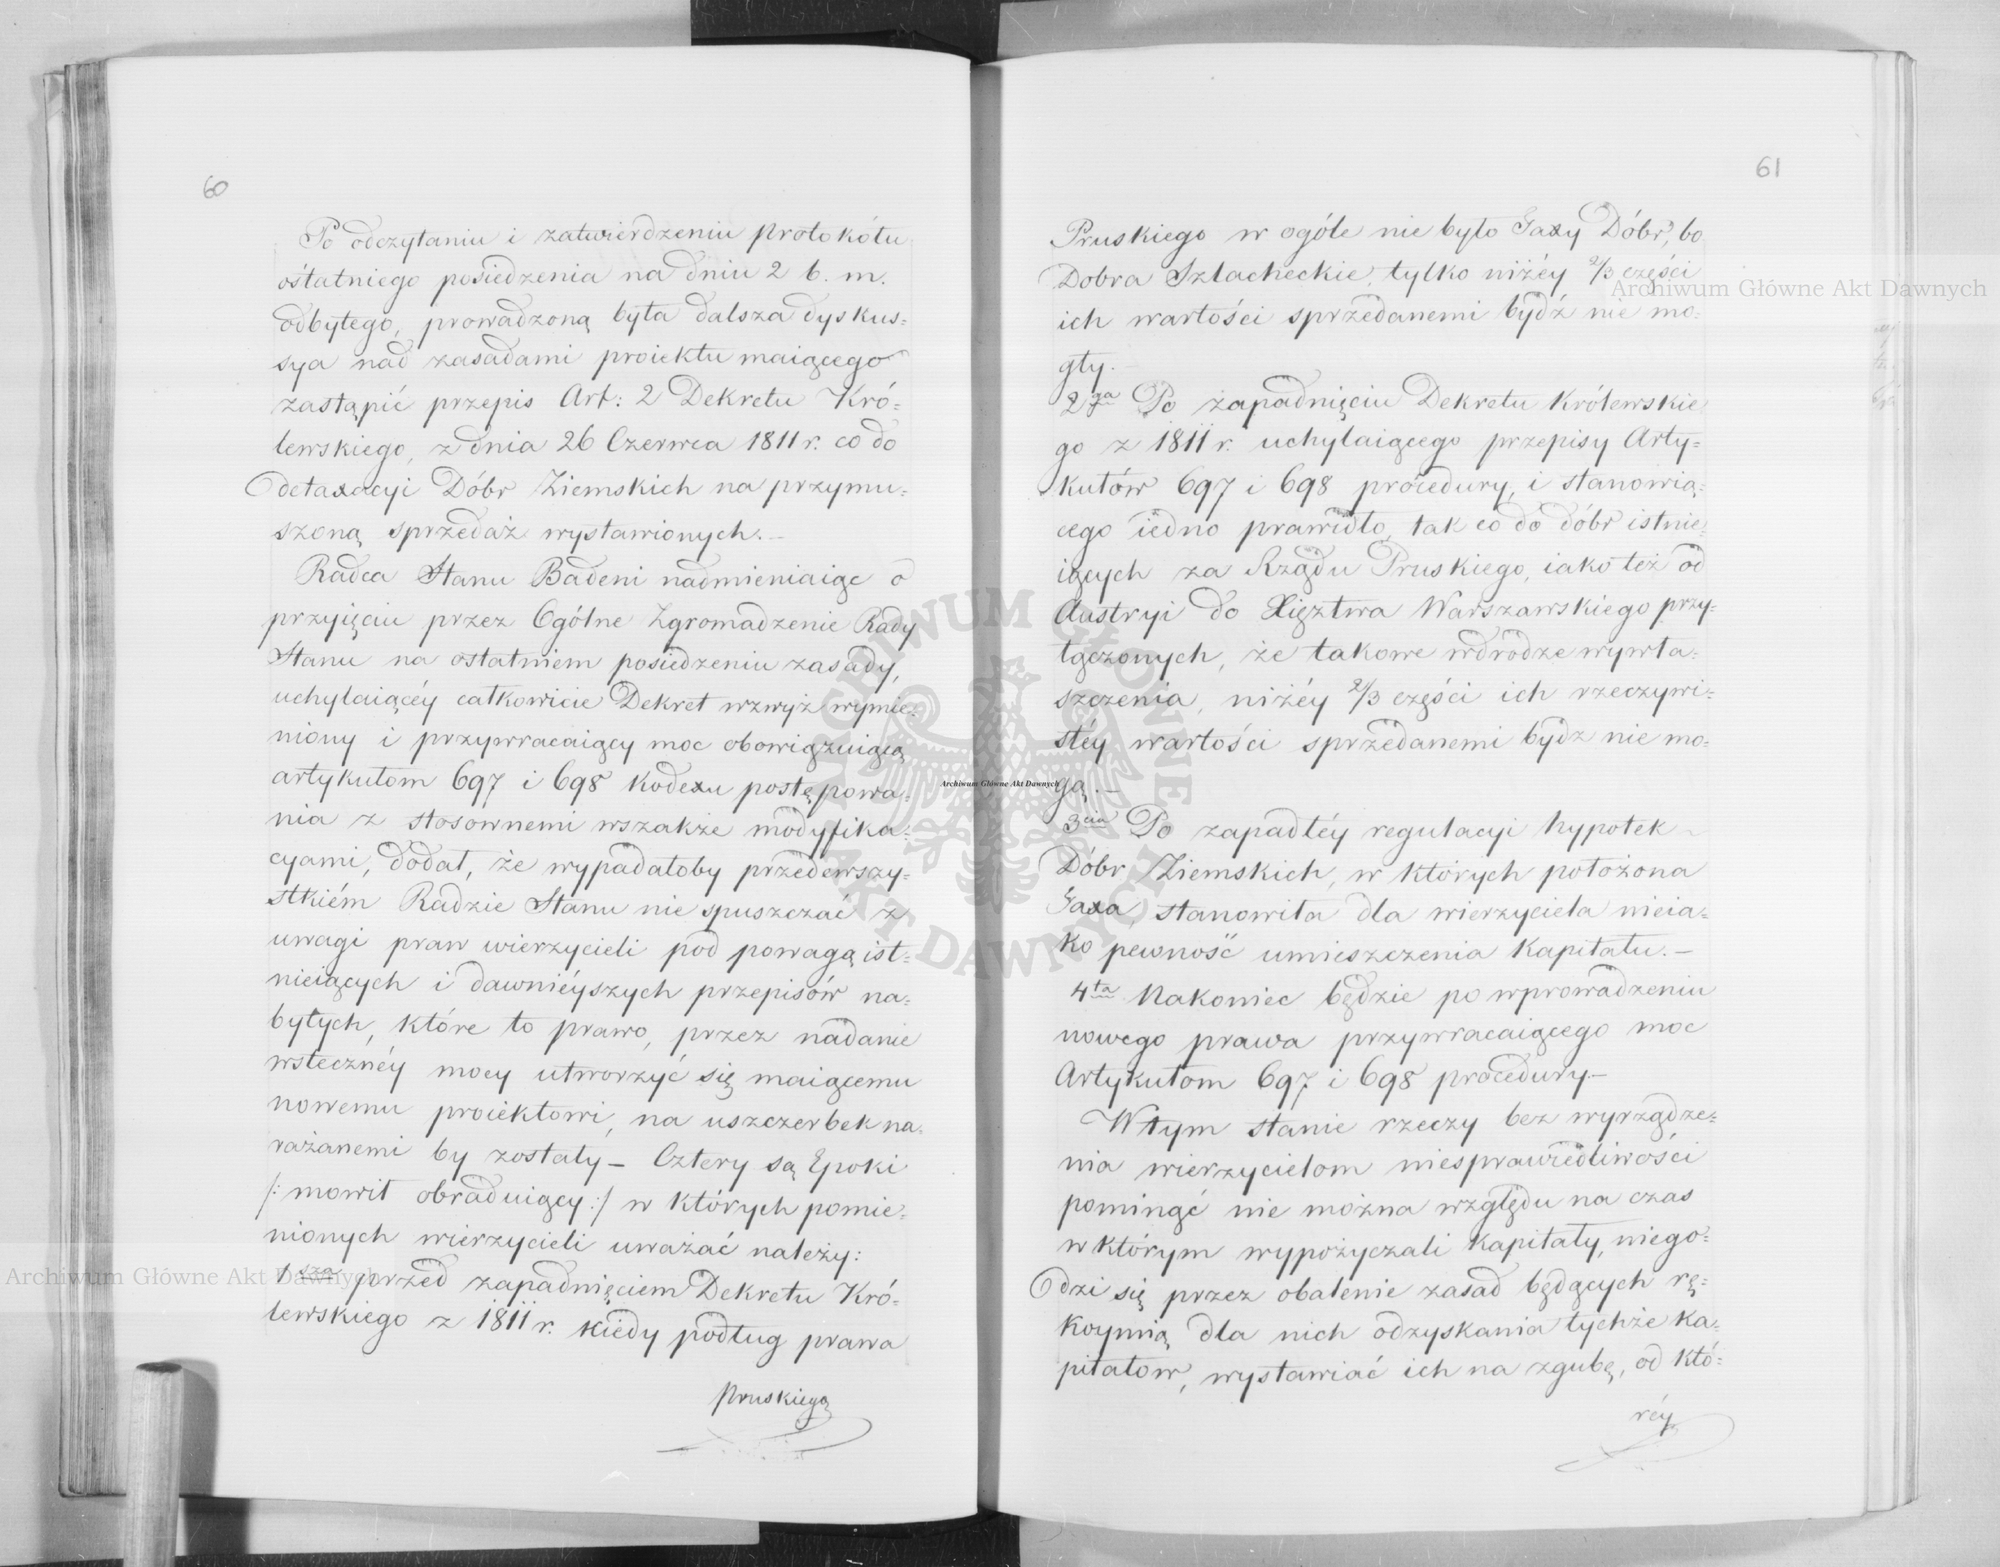 60
Po odczytaniu i zatwierdzeniu protokółu
ostatniego posiedzenia na dniu 2 b. m.
odbytego, prowadzoną była dalsza dyskus=
sya nad zasadami proiektu maiącego
zastąpić przepis Art: 2 Dekretu Kró=
lewskiego, z dnia 26 Czerwca 1811 r. co do
detaxacyi Dóbr Ziemskich na przymu=
szoną sprzedaż wystawionych. –
Radca Stanu Badeni nadmieniaiąc o
przyięciu przez Ogólne Zgromadzenie Rady
Stanu na ostatniem posiedzeniu zasady,
uchylaiącéy całkowicie Dekret wzwyż wymie=
niony i przywracaiący moc obowiązuiącą
artykułom 697 i 698 Kodexu postępowa=
nia z stosownemi wszakże modyfika=
cyami, dodał, że wypadałoby przedewszy=
stkiém Radzie Stanu nie spuszczać z
uwagi praw wierzycieli pod powagą ist=
nieiących i dawniéyszych przepisów na=
bytych, które to prawo, przez nadanie
wstecznéy mocy utworzyć się maiącemu
nowemu proiektowi, na uszczerbek na=
rażanemi by zostały – Cztery są Epoki
/: mowił obraduiący :/ w których pomie=
nionych wierzycieli uważać należy:
1sza przed zapadnięciem Dekretu Kró=
lewskiego z 1811 r. kiedy podług prawa
Pruskiego
61
Pruskiego w ogóle nie było Taxy Dóbr, bo
Dobra Szlacheckie, tylko niżéy 2/3 części
ich wartości sprzedanemi bydź nie mo=
gły. –
2ga Po zapadnięciu Dekretu Królewskie
go z 1811 r. uchylaiącego przepisy Arty=
kułów 697 i 698 procedury, i stanowią=
cego iedno prawidło, tak co do dóbr istnie
iących za Rządu Pruskiego, iako też od
Austryi do Xięztwa Warszawskiego przy=
łączonych, że takowe w drodze wywła=
szczenia, niżéy 2/3 części ich rzeczywi=
stéy wartości sprzedanemi bydz nie mo=
gą. –
3cia Po zapadłéy regulacyi hypotek
Dóbr Ziemskich, w których położona
Taxa stanowiła dla wierzyciela nieia=
ko pewność umieszczenia Kapitału. –
4ta Nakoniec będzie po wprowadzeniu
nowego prawa przywracaiącego moc
Artykułom 697 i 698 procedury –
W tym stanie rzeczy bez wyrządze=
nia wierzycielom niesprawiedliwości
pominąć nie można względu na czas
w którym wypożyczali Kapitały, niego=
dzi się przez obalenie zasad będących rę=
koymią dla nich odzyskania tychże Ka=
pitałow, wystawiać ich na zgubę, od któ=
réy
Archiwum Główne Akt Dawnych
Archiwum Główne Akt Dawnych
Archiwum Główne Akt Dawnych
ARCHIWUM GŁÓWNE
AKT DAWNYCH